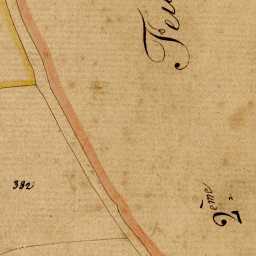 Feu
382
2eme